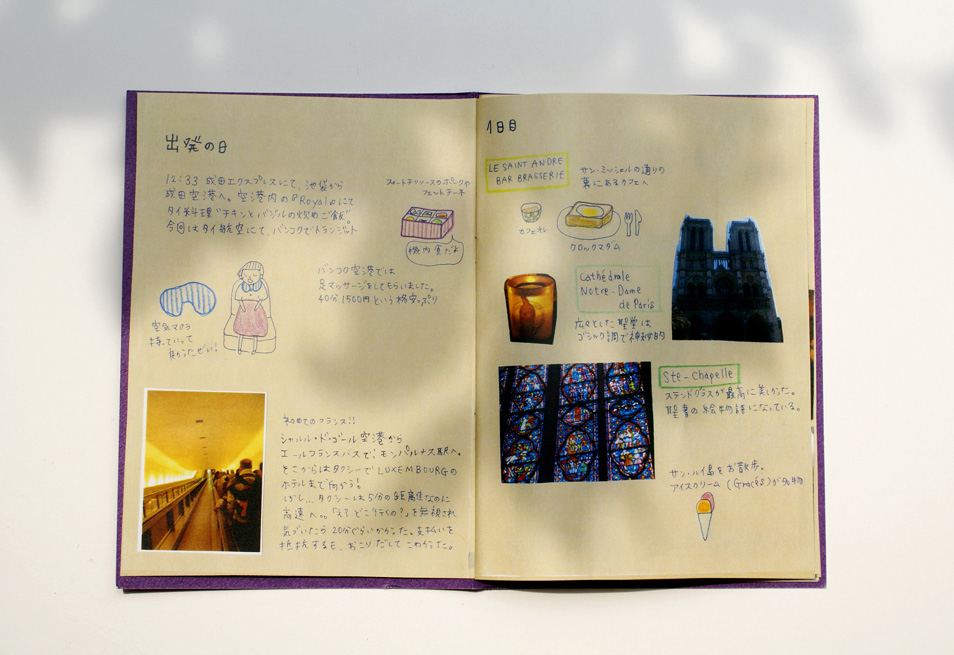 出発の日
12:33 成田エクスプレスにて、池袋から
成田空港へ。空港内の『Royal』にて
タイ料理"チキンとバジルの炒めご飯"
今回はタイ航空にて、バンコクでトランジット
フォートチリソースのポークや
フェットチーネ
機内食だよ
バンコク空港では
足マッサージをしてもらいました。
40分1500円という格安っぷり
空気マクラ
持っていって
良かったぜい!
初めてのフランス!!
シャルル・ド・ゴール空港から
エールフランスバスで、モンパルナス駅へ。
そこからはタクシーでLUXEMBOURGの
ホテルまで向かう!
しかし…タクシーは5分の距離なのに
高速へ。。「え?どこ行くの?」を無視され
気づいたら20分ぐらいかかった。支払いを
抵抗すると、おこりだして こわかった。
1日目
LE SAINT ANDRE
BAR BRASSERIE
サン・ミッシェルの通りの
裏にあるカフェへ
カフェオレ
クロックマダム
Cathédrale
Notre-Dame
de Paris
広々とした聖堂は
ゴシック調で神秘的
Ste-Chapelle
ステンドグラスが最高に美しかった。
聖書の絵物語になっている。
サン・ルイ島をお散歩。
アイスクリーム (Glacés)が名物